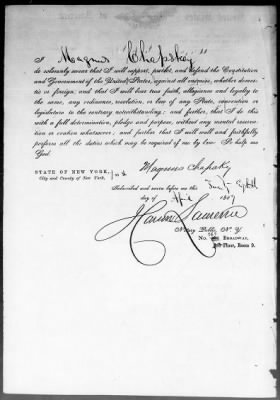 I Magnus Chapsky
do solemnly swear that I will support, protect, and defend the Constitution
and Government of the United States, against all enemies, whether domes-
tic or foreign; and that I will bear true faith, allegiance and loyalty to
the same, any ordinance, resolution, or law of any State, convention or
legislature to the contrary notwithstanding; and further, that I do this
with a full determination, pledge and purpose, without any mental reserva-
tion or evasion whatsoever; and further that I will well and faithfully
perform all the duties which may be required of me by law: So help me
God.
Magnus Chapsky
STATE OF NEW YORK,
City and County of New York, } ss
Subscribed and sworn before me this Twenty Eighth
day of April 1867
Lawrence
Notary Public, N. Y.
No. BROADWAY,
Floor, Room 9.